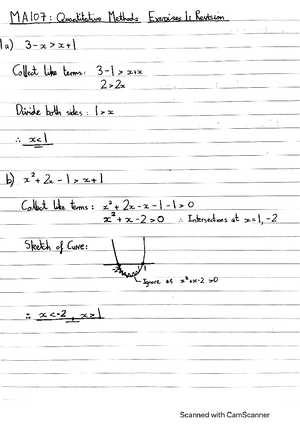 MA107: Quantitative Methods Exercises 1: Revision
1a) 3-x > x+1
Collect like terms: 3-1 > x+x
2 > 2x
Divide both sides: 1 > x
∴ x<1
b) x² + 2x - 1 > x+1
Collect like terms: x² + 2x - x - 1 - 1 > 0
x² + x - 2 > 0 ∴ Intersections at x = 1, -2
Sketch of Curve:
-2 1
Ignore as x²+x-2 > 0
∴ x < -2, x > 1
Scanned with CamScanner